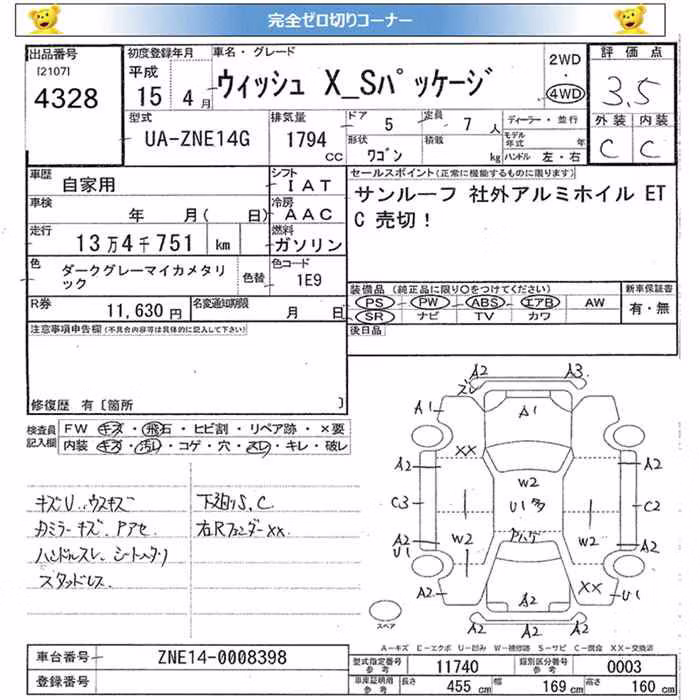 完全ゼロ切りコーナー
出品番号
[2107]
4328
初度登録年月
平成
15年 4月
車名・グレード
ウィッシュ X_Sパッケージ
2WD
・
4WD
評価点
3.5
外装 内装
C C
型式
UA-ZNE14G
排気量
1794
cc
ドア
5
定員
7 人
ディーラー・並行
形状
ワゴン
積載
kg
モデル年式
年
ハンドル 左・右
車歴
自家用
シフト
IAT
車検
年 月( 日)
冷房
AAC
走行
13万4千751 km
燃料
ガソリン
色
ダークグレーマイカメタリック
色替
色コード
1E9
R券
11,630 円
名変通知期限
月 日
セールスポイント(正常に機能するものに限ります)
サンルーフ 社外アルミホイル ET
C 売切!
装備品 (純正品に限り○をつけてください)
PS PW ABS エアB AW
SR ナビ TV カワ
新車保証書
有・無
後日品
注意事項申告欄(不具合内容等は具体的に記入して下さい)
修復歴 有〔箇所 〕
検査員記入欄
FW キズ・飛石・ヒビ割・リペア跡・×要
内装 キズ・汚レ・コゲ・穴・スレ・キレ・破レ
キズU..ウスキズ
カミラーキズ、Pアセ
ハンドルスレ、シートヘタリ
スタッドレス.
下廻りS、C
右Rフェンダーxx.
A2 A3
ズレ
A1 A1
XX
A2 A2
W2
C3 U1多 C2
A2 W2 W2 A2
U1
XX
A2 A2 U1
A2
スペア
A－キズ E－エクボ U－凹み W－補修跡 S－サビ C－腐食 XX－交換済
車台番号
ZNE14-0008398
登録番号
型式指定番号
参考
11740
類別区分番号
参考
0003
車庫証明用
参考
長さ 455 cm 幅 169 cm 高さ 160 cm